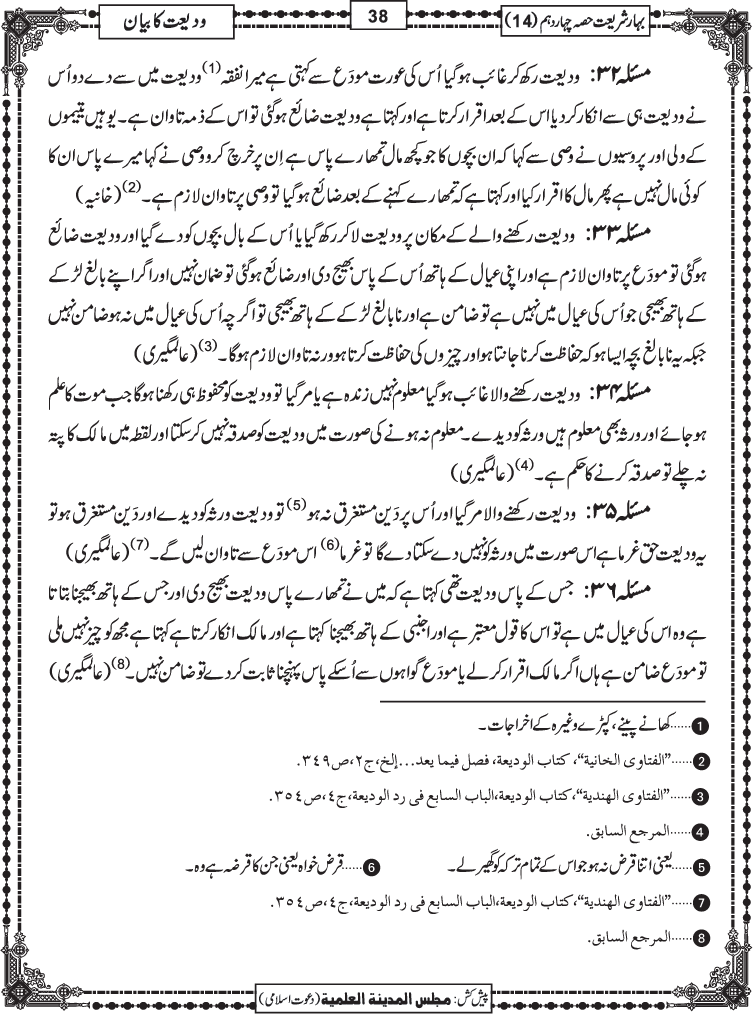 بہارِ شریعت حصہ چہاردہم (14)
38
ودیعت کا بیان
مسئلہ ۳۲: ودیعت رکھ کر غائب ہوگیا اُس کی عورت مودَع سے کہتی ہے میرا نفقہ(1) ودیعت میں سے دے دو اُس
نے ودیعت ہی سے انکار کردیا اس کے بعد اقرار کرتا ہے اور کہتا ہے ودیعت ضائع ہوگئی تو اس کے ذمہ تاوان ہے۔ یوہیں یتیموں
کے ولی اور پروسیوں نے وصی سے کہا کہ ان بچوں کا جو کچھ مال تمھارے پاس ہے اِن پر خرچ کرو وصی نے کہا میرے پاس ان کا
کوئی مال نہیں ہے پھر مال کا اقرار کیا اور کہتا ہے کہ تمھارے کہنے کے بعد ضائع ہوگیا تو وصی پر تاوان لازم ہے۔(2) (خانیہ)
مسئلہ ۳۳: ودیعت رکھنے والے کے مکان پر ودیعت لا کر رکھ گیا یا اُس کے بال بچوں کو دے گیا اور ودیعت ضائع
ہوگئی تو مودَع پر تاوان لازم ہے اور اپنی عیال کے ہاتھ اُس کے پاس بھیج دی اور ضائع ہوگئی تو ضمان نہیں اور اگر اپنے بالغ لڑکے
کے ہاتھ بھیجی جو اُس کی عیال میں نہیں ہے تو ضامن ہے اور نابالغ لڑکے کے ہاتھ بھیجی تو اگرچہ اُس کی عیال میں نہ ہو ضامن نہیں
جبکہ یہ نابالغ بچہ ایسا ہو کہ حفاظت کرنا جانتا ہو اور چیزوں کی حفاظت کرتا ہو ورنہ تاوان لازم ہوگا۔(3) (عالمگیری)
مسئلہ ۳۴: ودیعت رکھنے والا غائب ہوگیا معلوم نہیں زندہ ہے یا مرگیا تو ودیعت کو محفوظ ہی رکھنا ہوگا جب موت کا علم
ہوجائے اور ورثہ بھی معلوم ہیں ورثہ کو دیدے۔ معلوم نہ ہونے کی صورت میں ودیعت کو صدقہ نہیں کرسکتا اور لقطہ میں مالک کا پتہ
نہ چلے تو صدقہ کرنے کا حکم ہے۔(4) (عالمگیری)
مسئلہ ۳۵: ودیعت رکھنے والا مرگیا اور اُس پر دَین مستغرق نہ ہو(5) تو ودیعت ورثہ کو دیدے اور دَین مستغرق ہو تو
یہ ودیعت حق غرما ہے اس صورت میں ورثہ کو نہیں دے سکتا دے گا تو غرما(6) اس مودَع سے تاوان لیں گے۔(7) (عالمگیری)
مسئلہ ۳۶: جس کے پاس ودیعت تھی کہتا ہے کہ میں نے تمھارے پاس ودیعت بھیج دی اور جس کے ہاتھ بھیجنا بتاتا
ہے وہ اس کی عیال میں ہے تو اس کا قول معتبر ہے اور اجنبی کے ہاتھ بھیجنا کہتا ہے اور مالک انکار کرتا ہے کہتا ہے مجھ کو چیز نہیں ملی
تو مودَع ضامن ہے ہاں اگر مالک اقرار کرلے یا مودَع گواہوں سے اُسکے پاس پہنچنا ثابت کردے تو ضامن نہیں۔(8) (عالمگیری)
1......کھانے پینے، کپڑے وغیرہ کے اخراجات۔
2......"الفتاوی الخانیة"، کتاب الودیعة، فصل فیما یعد...إلخ، ج٢، ص٣٤٩.
3......"الفتاوی الهندیة"، کتاب الودیعة، الباب السابع فی رد الودیعة، ج٤، ص٣٥٤.
4......المرجع السابق.
5......یعنی اتنا قرض نہ ہو جو اس کے تمام ترکہ کو گھیر لے۔ 6......قرض خواہ یعنی جن کا قرضہ ہے وہ۔
7......"الفتاوی الهندیة"، کتاب الودیعة، الباب السابع فی رد الودیعة، ج٤، ص٣٥٤.
8......المرجع السابق.
پیش کش: مجلس المدینة العلمیة (دعوت اسلامی)